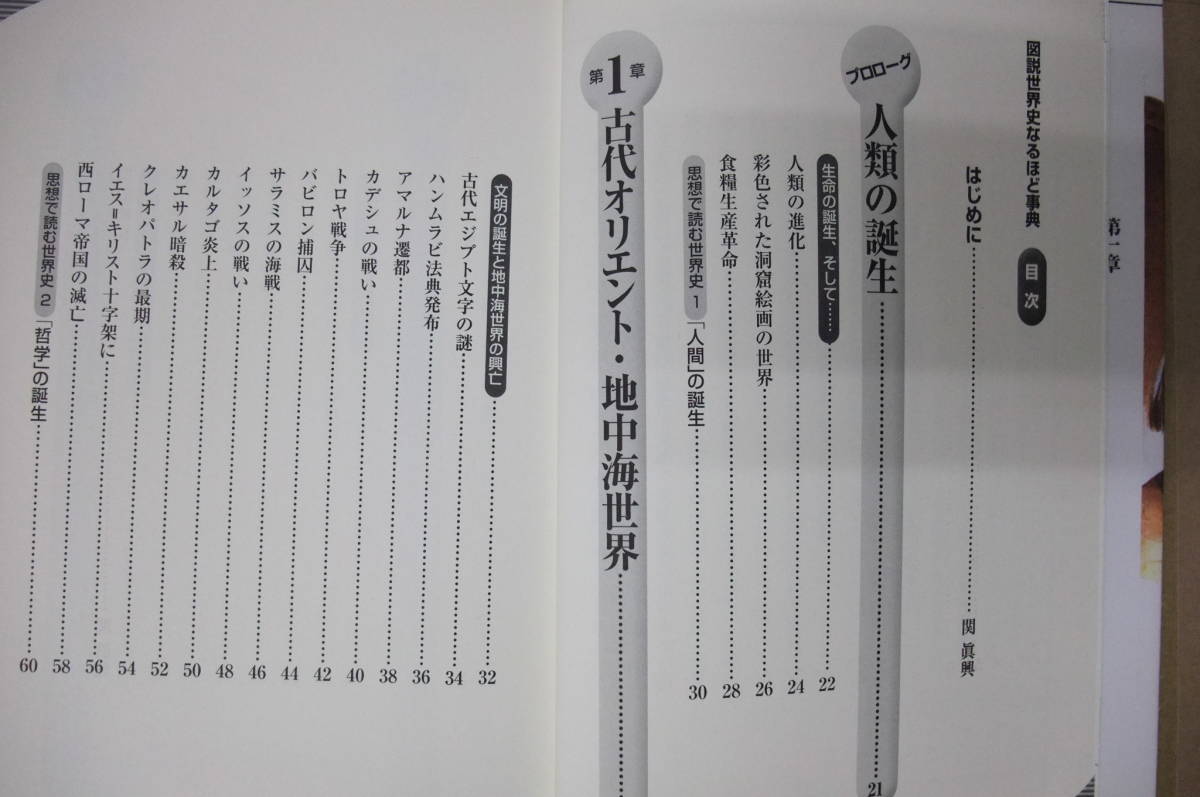 図説世界史なるほど事典 目次
はじめに……………………関 眞興
プロローグ 人類の誕生……………………21
生命の誕生、そして…………………………22
人類の進化……………………24
彩色された洞窟絵画の世界……………………26
食糧生産革命……………………28
思想で読む世界史 1 「人間」の誕生……………………30
第1章 古代オリエント・地中海世界……………………
文明の誕生と地中海世界の興亡……………………32
古代エジプト文字の謎……………………34
ハンムラビ法典発布……………………36
アマルナ遷都……………………38
カデシュの戦い……………………40
トロヤ戦争……………………42
バビロン捕囚……………………44
サラミスの海戦……………………46
イッソスの戦い……………………48
カルタゴ炎上……………………50
カエサル暗殺……………………52
クレオパトラの最期……………………54
イエス=キリスト十字架に……………………56
西ローマ帝国の滅亡……………………58
思想で読む世界史 2 「哲学」の誕生……………………60
第一章